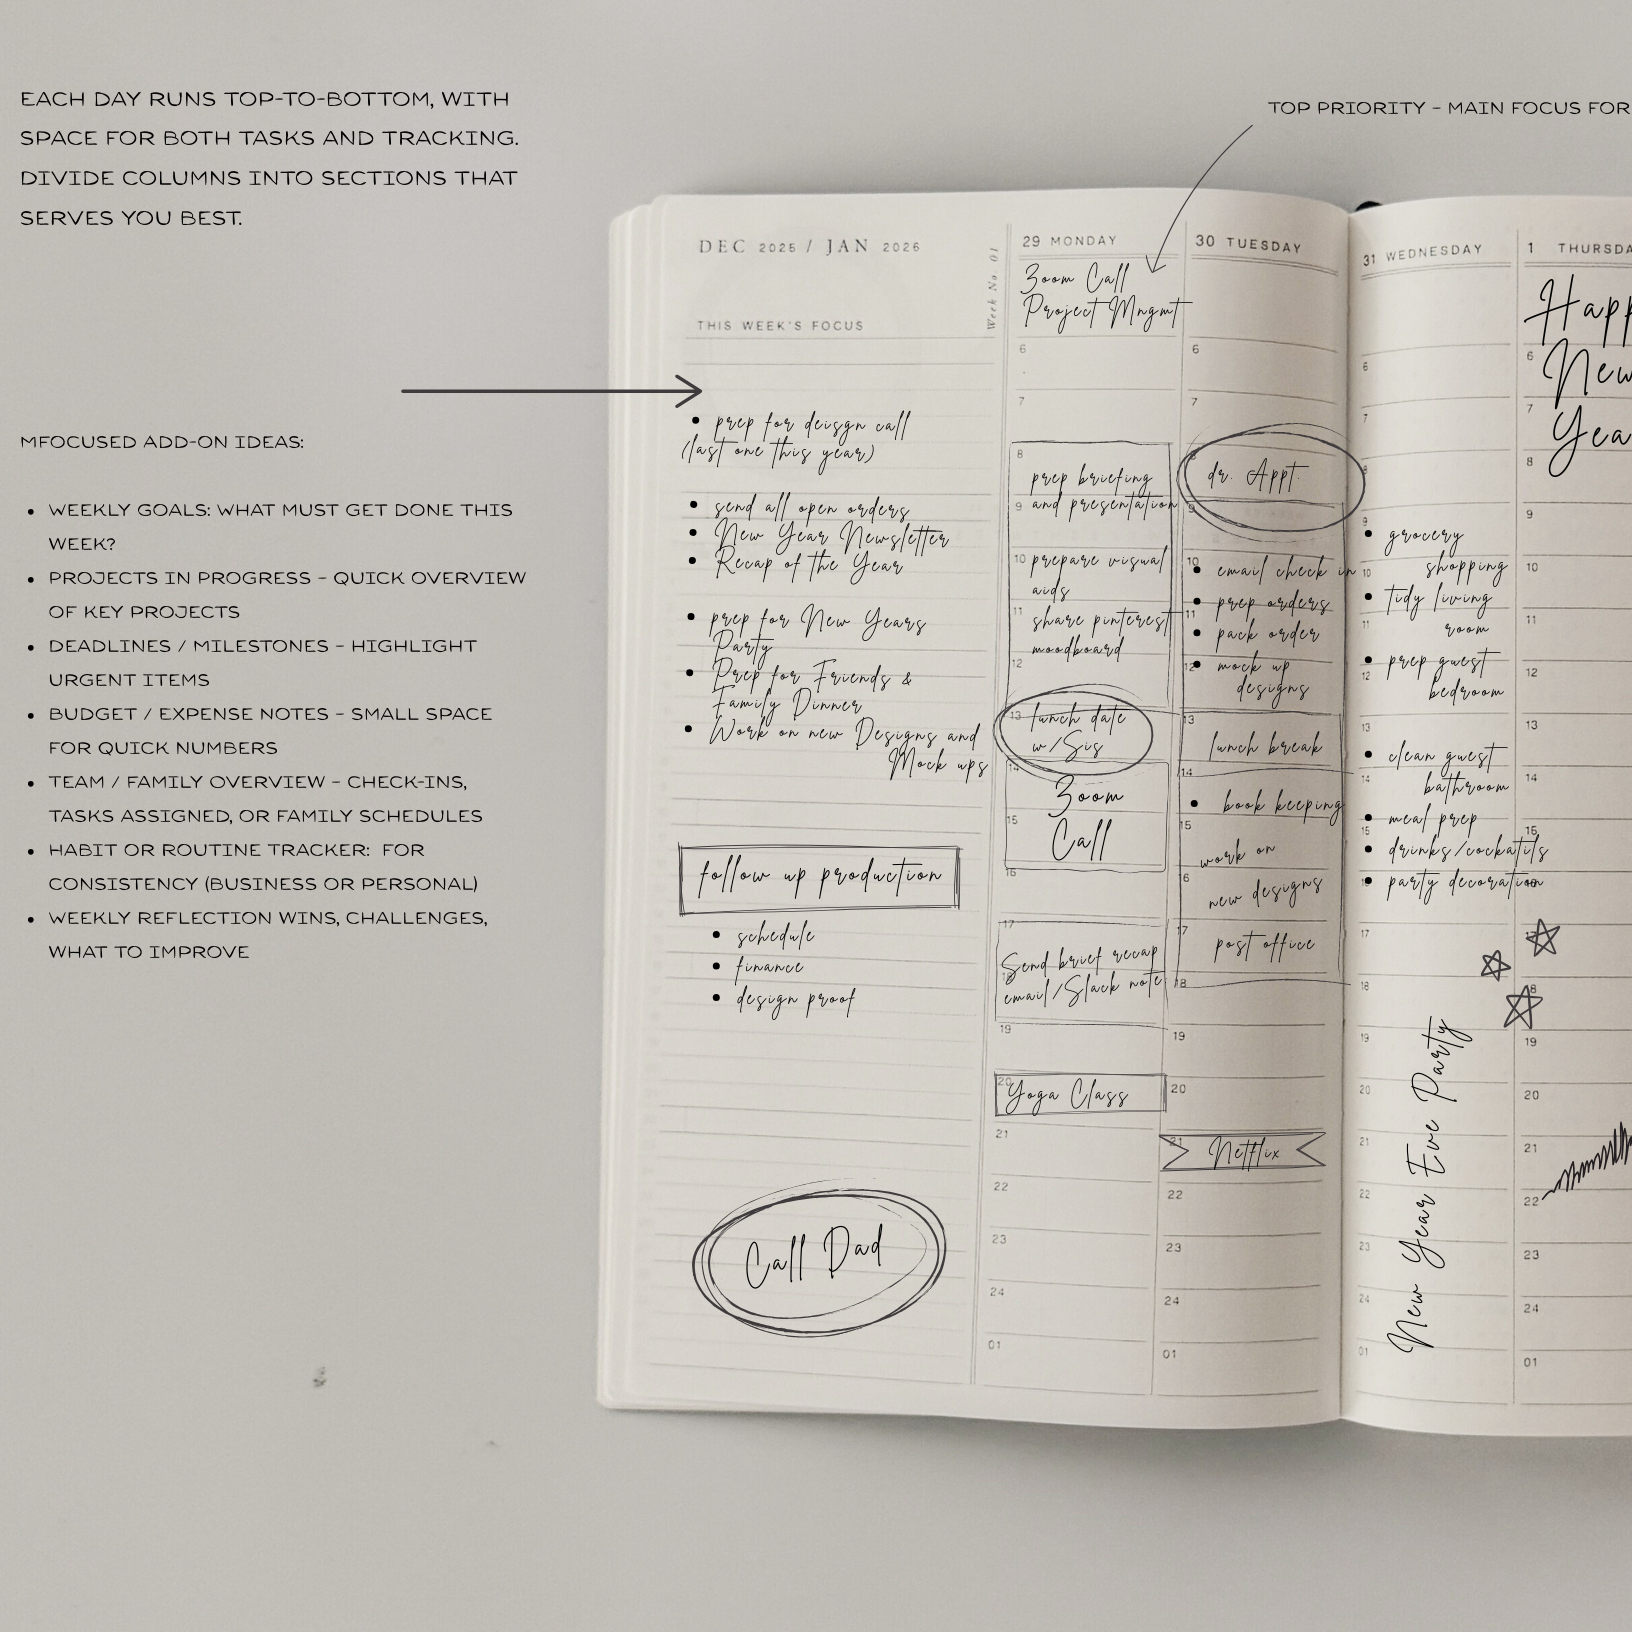 EACH DAY RUNS TOP-TO-BOTTOM, WITH
SPACE FOR BOTH TASKS AND TRACKING.
DIVIDE COLUMNS INTO SECTIONS THAT
SERVES YOU BEST.
MFOCUSED ADD-ON IDEAS:
• WEEKLY GOALS: WHAT MUST GET DONE THIS
WEEK?
• PROJECTS IN PROGRESS - QUICK OVERVIEW
OF KEY PROJECTS
• DEADLINES / MILESTONES - HIGHLIGHT
URGENT ITEMS
• BUDGET / EXPENSE NOTES - SMALL SPACE
FOR QUICK NUMBERS
• TEAM / FAMILY OVERVIEW - CHECK-INS,
TASKS ASSIGNED, OR FAMILY SCHEDULES
• HABIT OR ROUTINE TRACKER: FOR
CONSISTENCY (BUSINESS OR PERSONAL)
• WEEKLY REFLECTION WINS, CHALLENGES,
WHAT TO IMPROVE
TOP PRIORITY - MAIN FOCUS FOR
DEC 2025 / JAN 2026
Week No. 01
THIS WEEK'S FOCUS
• prep for deisgn call
(last one this year)
• send all open orders
• New Year Newsletter
• Recap of the Year
• prep for New Years
Party
• Prep for Friends &
Family Dinner
• Work on new Designs and
Mock ups
follow up production
• schedule
• finance
• design proof
Call Dad
29 MONDAY
Zoom Call
Project Mngmt
6
7
8
prep briefing
9 and presentation
10 prepare visual
aids
11 share pinterest
moodboard
12
13 lunch date
w/Sis
14
Zoom
15 Call
16
17
Send brief recap
18
email/Slack note
19
20 Yoga Class
21
22
23
24
01
30 TUESDAY
6
7
8
dr. Appt.
9
10 • email check in
• prep orders
11 • pack order
12 • mock up
designs
13
lunch break
14
• book keeping
15
work on
16
new designs
17 post office
18
19
20
21 Netflix
22
23
24
01
31 WEDNESDAY
6
7
8
9
• grocery
10 shopping
• tidy living
11 room
• prep guest
12
bedroom
13
• clean guest
14 bathroom
• meal prep
15
• drinks/cockatils
• party decoration
17
18
19
20
21
22
23
24
01
New Year Eve Party
1 THURSDA
Happ
6 New
7 Yea
8
9
10
11
12
13
14
15
16
17
18
19
20
21
22
23
24
01